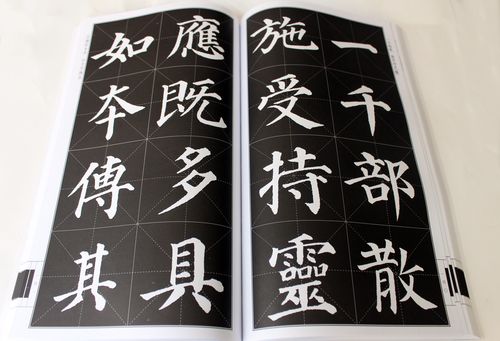 一千部散
施受持靈
應既多具
如夲傳其